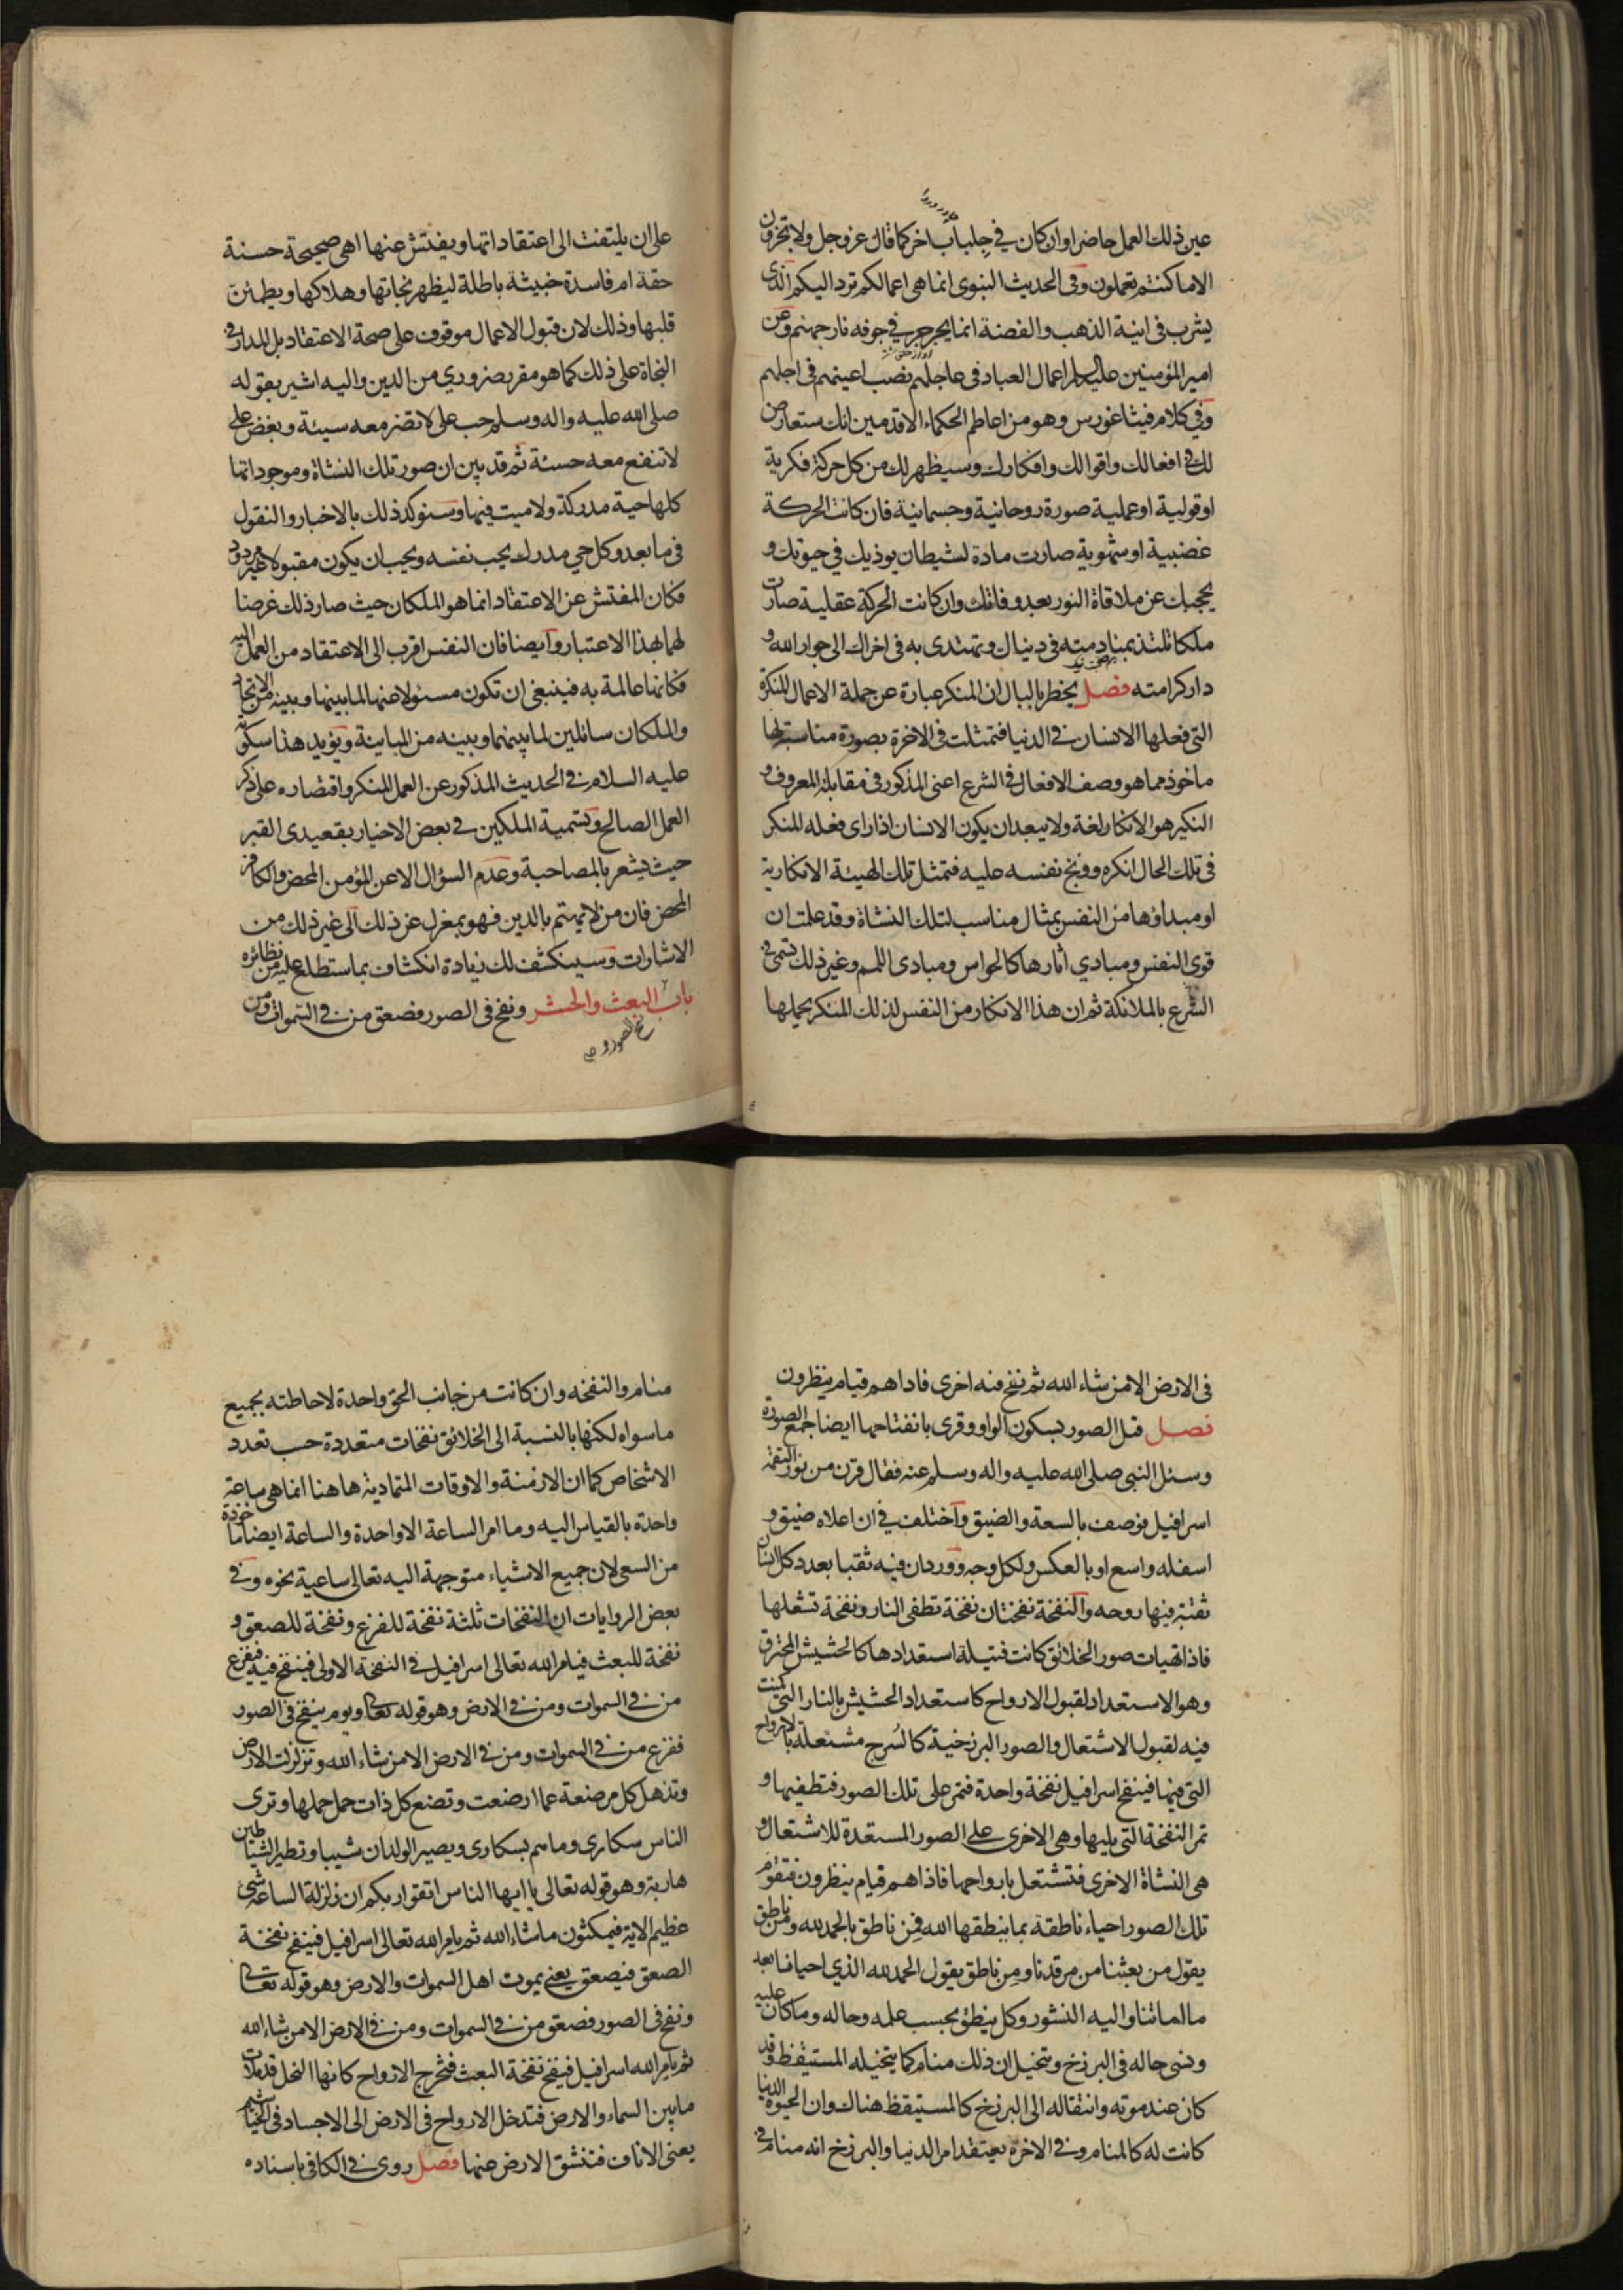 عين ذلك العمل حاضرا وان كان في جلباب اخر كما قال عز وجل ولا تجزون
الا ما كنتم تعملون وفى الحديث النبوى انما هى اعمالكم ترد اليكم الذى
يشرب فى انية الذهب والفضة انما يجرجر في جوفه نار جهنم وعن
امير المؤمنين عليه السلم اعمال العباد فى عاجلهم نصب اعينهم فى اجلهم
وفي كلام فيثاغورس وهو من اعاظم الحكماء الاقدمين انك ستعارض
لك فى افعالك واقوالك وافكارك وسيظهر لك من كل حركة فكرية
او قولية او عملية صورة روحانية وجسمانية فان كانت الحركة
غضبية او شهوية صارت مادة لشيطان يوذيك في حيوتك و
يحجبك عن ملاقاة النور بعد وفاتك وان كانت الحركة عقلية صارت
ملكا تلتذ بمنادمته فى دنياك وتهتدى به فى اخراك الى جوار الله و
دار كرامته فصل يخطر بالبال ان المنكر عبارة عن جملة الاعمال المنكرة
التى فعلها الانسان فى الدنيا فتمثلت فى الاخرة بصورة مناسبة لها
ماخوذ مما هو وصف الافعال فى الشرع اعنى المذكور فى مقابلة المعروف و
النكير هو الانكار لغة ولا يبعد ان يكون الانسان اذا راى فعله المنكر
فى تلك الحال انكره ووبخ نفسه عليه فتمثل تلك الهيئة الانكارية
او مبداؤها من النفس بمثال مناسب لتلك النشاة وقد علمت ان
قوى النفس ومبادي اثارها كالحواس ومبادى اللمم وغير ذلك تسمى فى
الشرع بالملائكة ثم ان هذا الانكار من النفس لذلك المنكر يحملها
على ان يلتفت الى اعتقاداتها ويفتش عنها اهى صحيحة حسنة
حقة ام فاسدة خبيثة باطلة ليظهر نجاتها وهلاكها ويطمئن
قلبها وذلك لان قبول الاعمال موقوف على صحة الاعتقاد بل المدار فى
النجاة على ذلك كما هو مقرر ضروري من الدين واليه اشير بقوله
صلى الله عليه واله وسلم حب على لا تضر معه سيئة وبغض على
لا تنفع معه حسنة ثم قد بين ان صور تلك النشاة وموجوداتها
كلها حية مدركة ولا ميت فيها وسنؤكد ذلك بالاخبار والنقول
فى ما بعد وكل حي مدرك يحب نفسه ويحب ان يكون مقبولا غير مردود
فكان المفتش عن الاعتقاد انما هو الملكان حيث صار ذلك غرضا
لهما بهذا الاعتبار وايضا فان النفس اقرب الى الاعتقاد من العمل اليه
فكانها عالمة به فينبغى ان تكون مسئولا عنها لما بينها وبينه من الاتحاد
والملكان سائلين لما بينهما وبينه من المباينة ويؤيد هذا سكوته
عليه السلام فى الحديث المذكور عن العمل المنكر واقتصاره على ذكر
العمل الصالح وتسمية الملكين في بعض الاخبار بقعيدى القبر
حيث يشعر بالمصاحبة وعدم السؤال الا عن المؤمن المحض والكافر
المحض فان من لا يهتم بالدين فهو بمعزل عن ذلك الى غير ذلك من
الاشارات وسينكشف لك زيادة انكشاف بما ستطلع عليه من نظائره
باب البعث والحشر ونفخ فى الصور فصعق من في السموات ومن
فى الارض الا من شاء الله ثم نفخ فيه اخرى فاذا هم قيام ينظرون
فصل قيل الصور بسكون الواو وقرى بانفتاحها ايضا جمع الصورة
وسئل النبى صلى الله عليه واله وسلم عنه فقال قرن من نور التقمه
اسرافيل فوصف بالسعة والضيق واختلف في ان اعلاه ضيق و
اسفله واسع او بالعكس ولكل وجه وورد ان فيه ثقبا بعدد كل انسان
ثقبة فيها روحه والنفخة نفختان نفخة تطفى النار ونفخة تشعلها
فاذا تهيات صور الخلائق كانت فتيلة استعدادها كالحشيش المحترق
وهو الاستعداد لقبول الارواح كاستعداد الحشيش بالنار التى كمنت
فيه لقبول الاشتعال والصور البرزخية كالسرج مشتعلة بالارواح
التى فيها فينفخ اسرافيل نفخة واحدة فتمر على تلك الصور فتطفيها و
تمر النفخة التى يليها وهى الاخرى على الصور المستعدة للاشتعال و
هى النشاة الاخرى فتشتعل بارواحها فاذا هم قيام ينظرون فتقوم
تلك الصور احياء ناطقة بما ينطقها الله فمن ناطق بالحمد لله ومن ناطق
يقول من بعثنا من مرقدنا ومن ناطق يقول الحمد لله الذي احيانا بعد
ما اماتنا واليه النشور وكل ينطق بحسب علمه وحاله وما كان عليه
ونسى حاله فى البرزخ ويتخيل ان ذلك منام كما يتخيله المستيقظ وقد
كان عند موته وانتقاله الى البرزخ كالمستيقظ هناك وان الحيوة الدنيا
كانت له كالمنام وفى الاخرة يعتقد امر الدنيا والبرزخ انه منام فى
منام والنفخه وان كانت من جانب الحق واحدة لاحاطته بجميع
ما سواه لكنها بالنسبة الى الخلائق نفخات متعددة حسب تعدد
الاشخاص كما ان الازمنة والاوقات المتمادية هاهنا انما هى ساعة
واحدة بالقياس اليه وما امر الساعة الا واحدة والساعة ايضا ماخوذة
من السعى لان جميع الاشياء متوجهة اليه تعالى ساعية نحوه وفى
بعض الروايات ان النفخات ثلثة نفخة للفزع ونفخة للصعق و
نفخة للبعث فيامر الله تعالى اسرافيل فى النفخة الاولى فينفخ فيه فيفزع
من في السموات ومن في الارض وهو قوله تعالى ويوم ينفخ فى الصور
ففزع من في السموات ومن في الارض الا من شاء الله وتزلزلت الارض
وتذهل كل مرضعة عما ارضعت وتضع كل ذات حمل حملها وترى
الناس سكارى وما هم بسكارى ويصير الولدان شيبا وتطير الشياطين
هاربة وهو قوله تعالى يا ايها الناس اتقوا ربكم ان زلزلة الساعة شئ
عظيم الاية فيمكثون ما شاء الله ثم يامر الله تعالى اسرافيل فينفخ نفخة
الصعق فيصعق يعنى يموت اهل السموات والارض وهو قوله تعالى
ونفخ فى الصور فصعق من في السموات ومن في الارض الا من شاء الله
ثم يامر الله اسرافيل فينفخ نفخة البعث فتخرج الارواح كانها النحل قد ملات
ما بين السماء والارض فتدخل الارواح فى الارض الى الاجساد فى الخياشيم
يعنى الاناف فتنشق الارض عنها فصل روى في الكافى باسناده